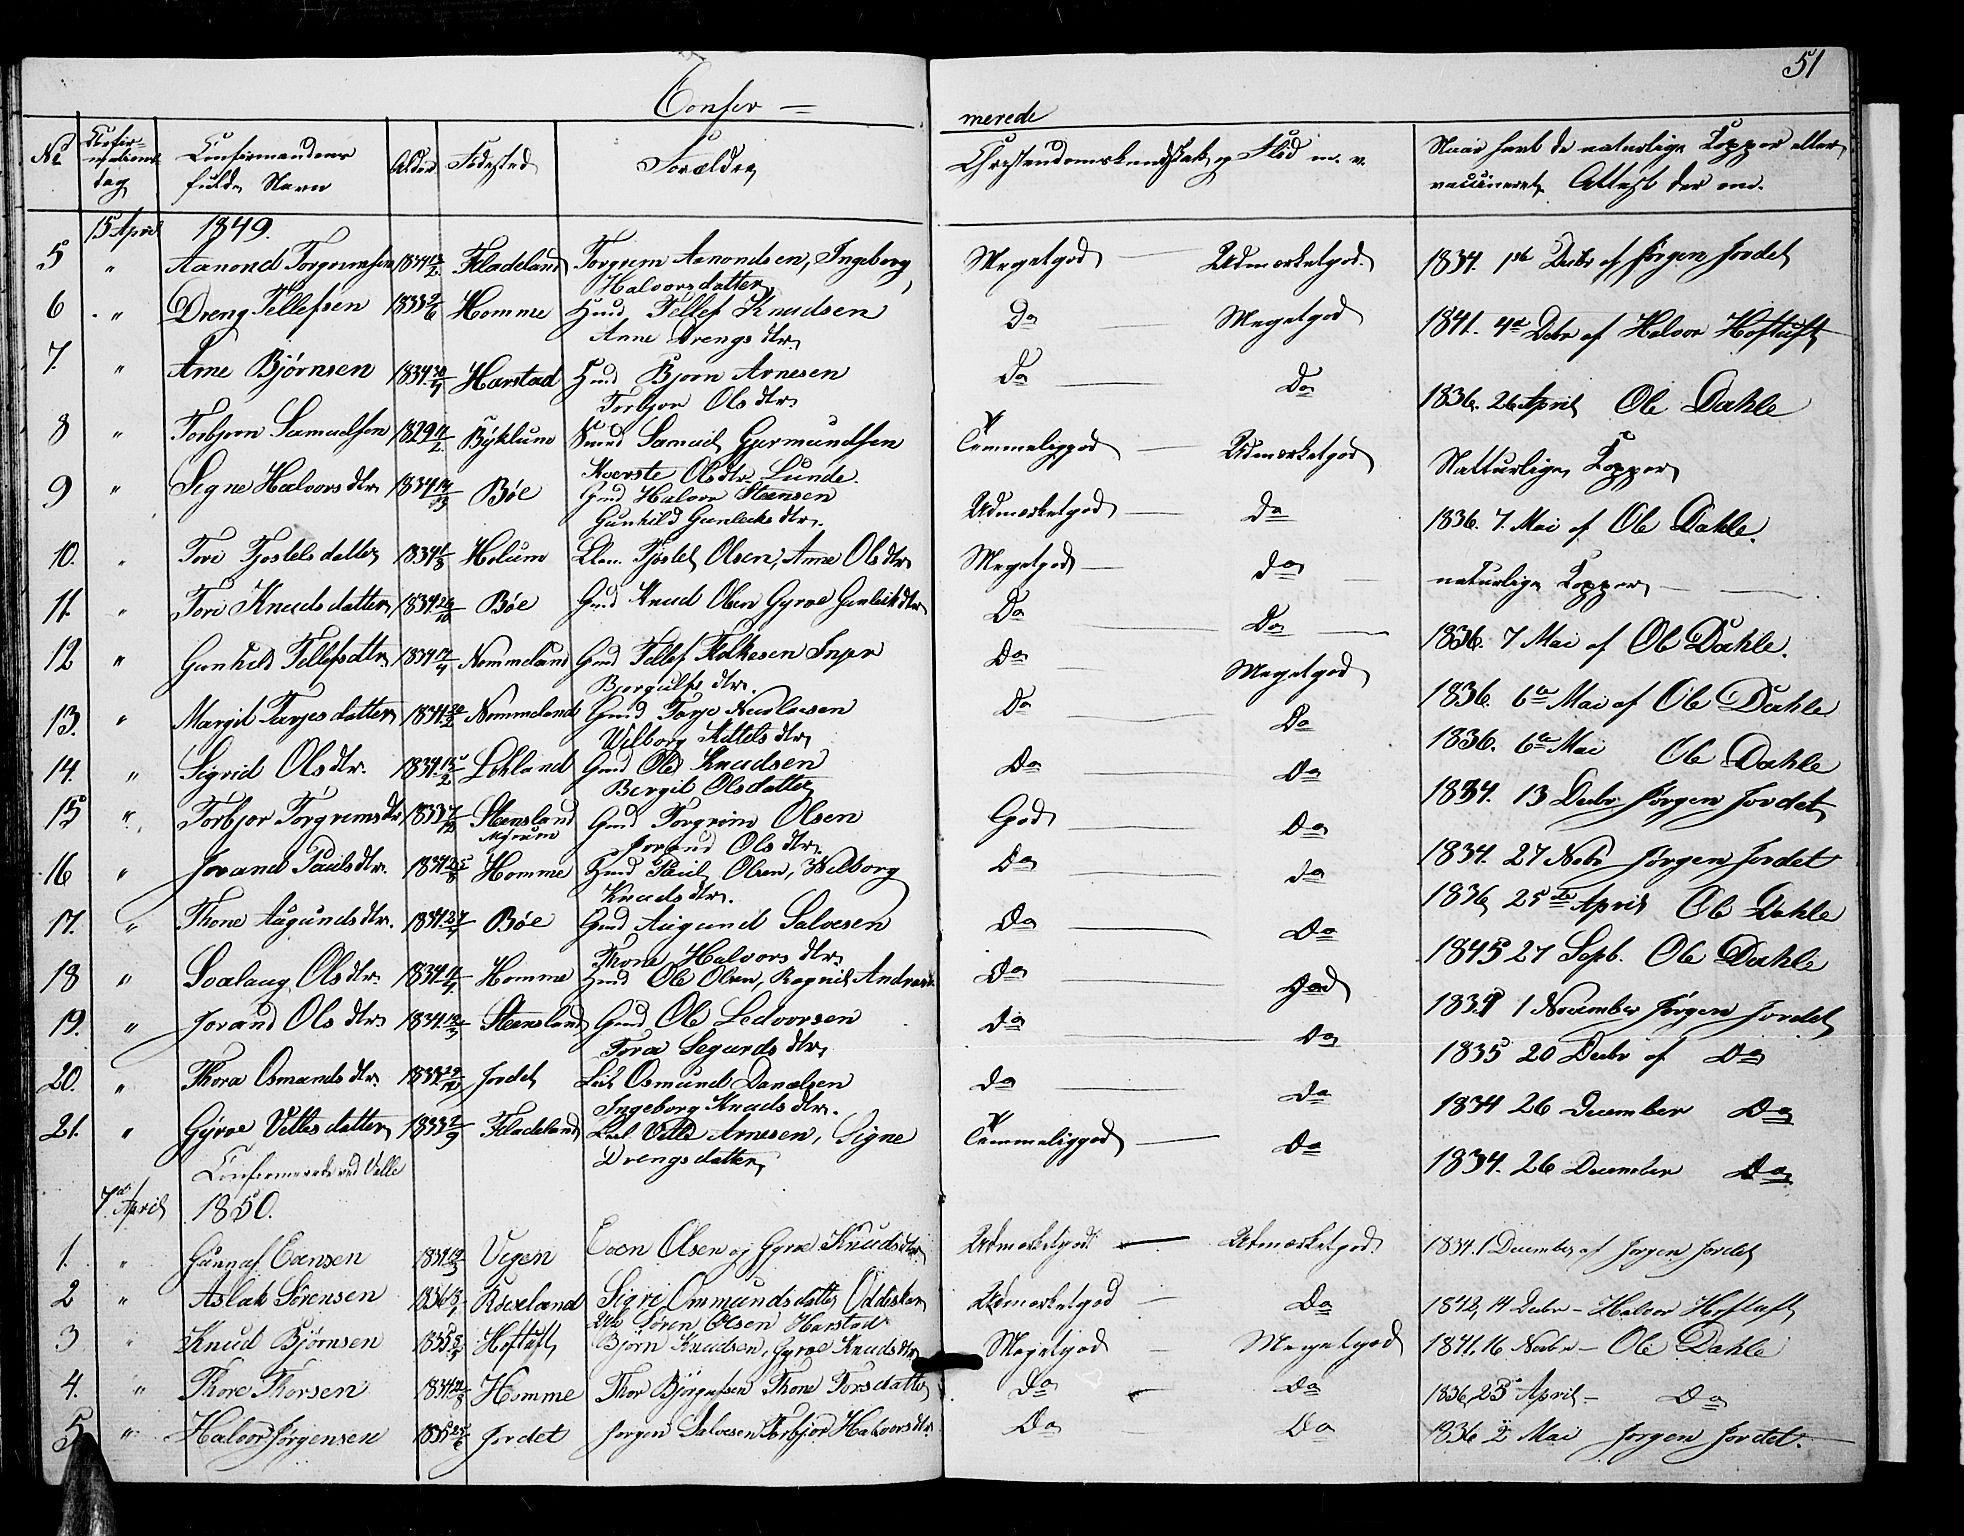 51
Confir = merede
No Confirmations dag Confirmandens fulde Navn Alder Fødested Forældre Christendomskundskab og Flid m. v. Naar havt de naturlige Kopper eller vaccineret, Attest der om.
15 April 1849.
5 " Aanond Torgrimsen 1834 Fladeland Torgrim Aanondsen, Ingeborg Halvorsdatter Megetgod — Udmærketgod. 1834. 1ste Decbr af Jørgen Jordet
6 " Dreng Tellefsen 1833 Homme Huusd Tellef Knudsen Anne Drengsdtr. Do — Megetgod 1841. 4de Decbr af Halvor Hoftuft
7. " Arne Bjørnsen 1834 Harstad Bjørn Arnesen Torbjør Olsdtr Do — Do 1836. 26 April Ole Dahle
8 " Torbjørn Samuelsen 1829 Byklum Samuel Gjermundsen Averste Olsdtr. Lunde. Temmeliggod — Udmærketgod Natturlige Kopper
9 " Signe Halvorsdtr 1834 Bøe Gmd Halvor Steensen Gunhild Gunlecksdtr. Udmærketgod — Do 1836. 7. Mai af Ole Dahle.
10. " Tore Fjostelsdatter 1834 Holum Fjostel Olsen, Anne Olsdtr Megetgod — Do naturlige Kopper —
11. " Tore Knudsdatter 1834 Bøe Gmd Knud Olsen Gyroe Gunleikdtr Do — Do — 1836. 7 Mai af Ole Dahle.
12 " Gunhild Tellefsdtr 1834 Nommeland Gmd Tellef Folkesen Inger Bjorgulfsdtr. Do Megetgod 1836. 6te Mai af Ole Dahle
13. " Margit Tarjesdatter 1834 Nommeland Gmd Tarje Neulavsen Wilborg Kittelsdtr Do — Do 1836. 6te Mai Ole Dahle
14. " Sigrid Olsdtr. 1834 Løkland Gmd Ole Knudsen Bergit Olsdatter Do — Do 1834. 13 Decbr Jørgen Jordet
15 " Torbjor Torgrimsdtr 1833 Stensland Gmd Torgrim Olsen Jorand Olsdtr. God — Do 1834. 27 Novbr Jørgen Jordet
16 " Jorand Paulsdtr. 1834 Homme Huusd Paul Olsen, Wilborg Knudsdtr. Do — Do 1836 25de April Ole Dahle
17. " Thone Augundsdtr. 1834 Bøe Gmd Augund Salvesen Thone Halvorsdtr. Do — Do 1845 27 Septb. Ole Dahle
18 " Svalaug Olsdtr. 1834 Homme Huusd Ole Olsen, Ragnild Do — God 1834 1 November Jørgen Jordet
19. " Jorand Olsdtr 1834 Steensland Gmd Ole Ledvorsen Tora Segurdsdtr, Do — Do 1835 20 Decbr af Do
20. " Thora Osmundsdtr 1833 Jordet Osmund Danielsen Ingeborg Knudsdtr. Do — Do 1834 26 December Do
21. " Gyroe Vettesdatter 1833 Fladeland Vette Arnesen, Signe Drengsdatter Temmeliggod — Do 1834. 26 December Do
Confirmerede ved Valle
7de April 1850.
1. " Gunnuf Evensen 1834 Vegen Even Olsen og Gyroe Knudsdtr. Udmerketgod — Udmærketgod 1834. 1 December af Jørgen Jordet
2 " Aslak Sørensen 1836 Sigri Ommundsdatter Søren Olsen Harstad Udmerketgod — Do 1842, 14 Decbr – Halvor Hoftuft
3 " Knud Bjørnsen 1835 Hoftuft, Bjørn Knudsen, Gyroe Knudsdtr Megetgod — Megetgod 1841. 16 Novbr – Ole Dahle
4. " Thore Thorsen 1834 Homme Thor Bjørgufsen Thone Torsdatter Do — Do 1836, 25 April – Do
5 " Halvor Jørgensen 1835 Jordet Jørgen Salvesen Torbjor Halvorsdtr. Do Do 1836 2 Mai Jørgen Jordet.